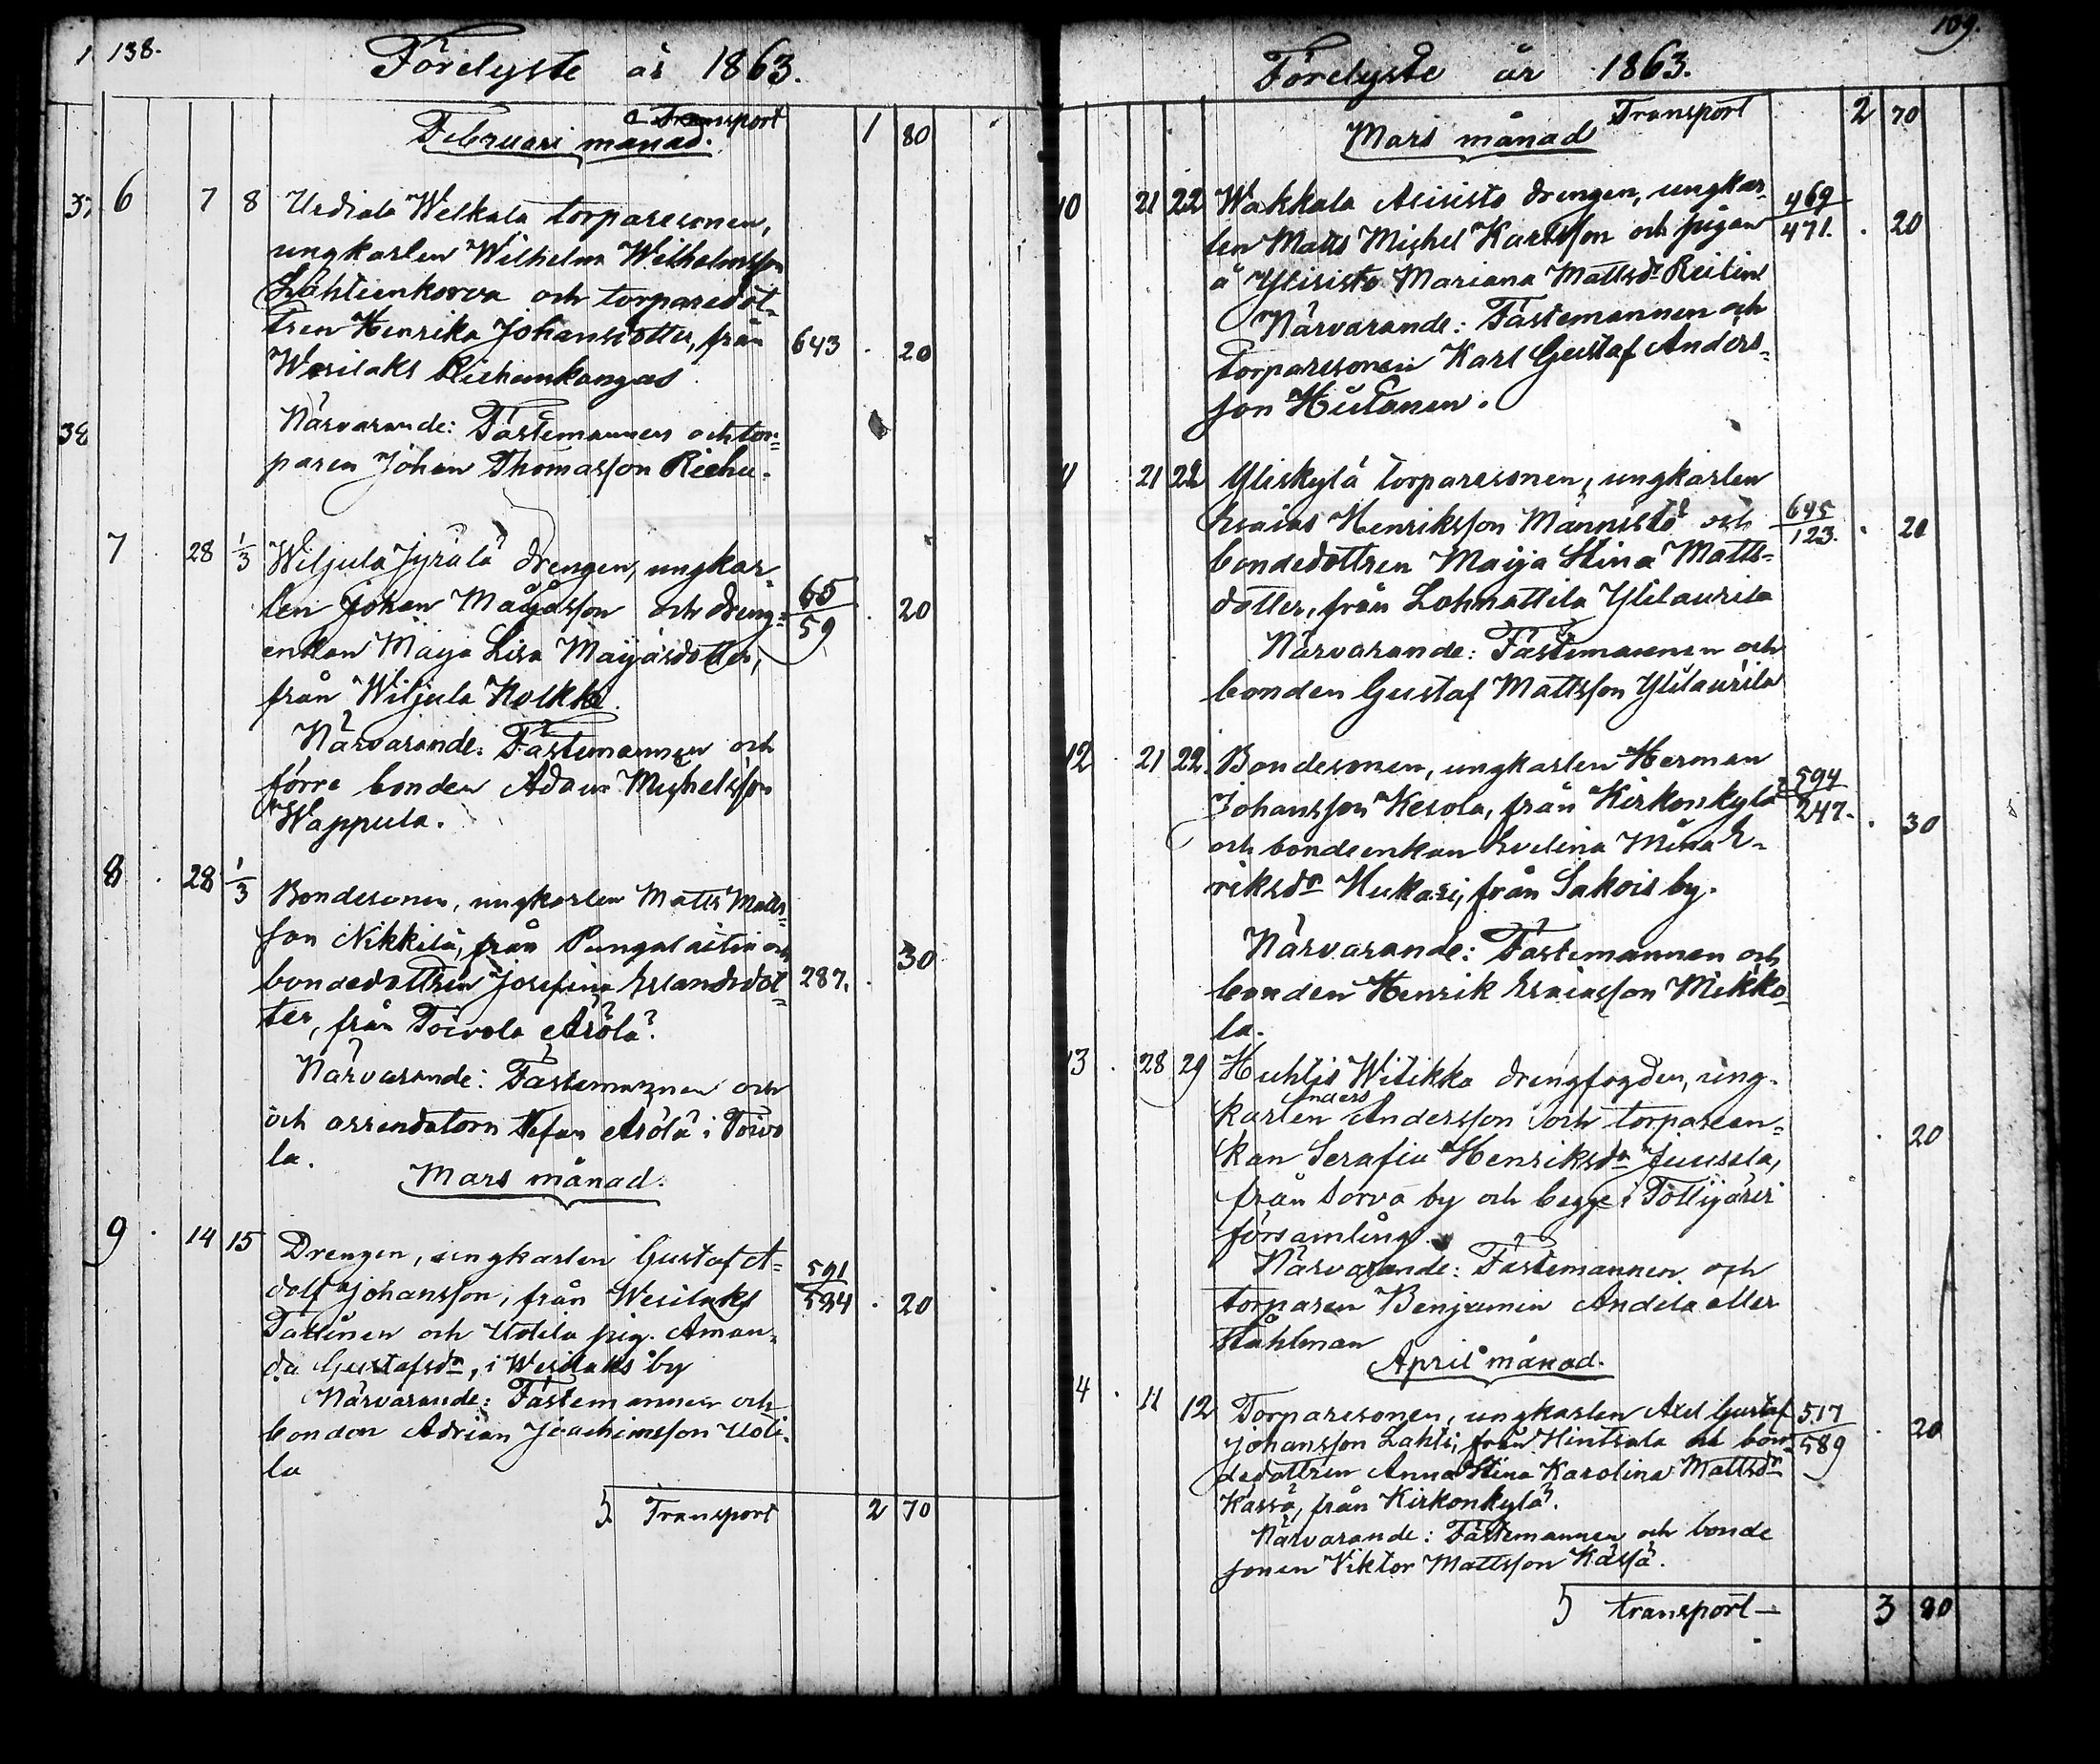 138.
Förelyste år 1863.
Transport 1 80
Februari månad.
6 7 8 Urdiala Welkala torparesonen,
ungkarlen Wilhelm Wilhelmsson
Lähteenkorva och torparedot-
tren Henrika Johansdotter, från 643 . 20
Wesilaks Riehunkangas
Närvarande: Fästemannen och tor-
paren Johan Thomasson Riehu.
7 28 1/3 Wiljula Jyrälä drengen, ungkar-
len Johan Majasson och dreng- 65/59 . 20
enkan Maja Lisa Majasdotter,
från Wiljula Nolkki.
Närvarande: Fästemannen och
förre bonden Adam Michelsson
Wappula.
8 . 28 1/3 Bondesonen, ungkarlen Matts Matts-
son Nikkilä, från Pungalaitio och
bondedottren Josefina Erlandsdot- 287. . 30
ter, från Toivola Arölä.
Närvarande: Fästemannen och
och arrendatorn Stefan Arölä i Toivo
la.
Mars månad.
9 . 14 15 Drengen, ungkarlen Gustaf A-
dolf Johansson, från Wesilaks 591/594 . 20
Tallinen och Uotila pig. Aman-
da Gustafsdr, i Wesilaks by
Närvarande: Fästemannen och
bonden Adrian Joachimsson Uoti-
la
5 Transport 2 70
139.
Förelyste år 1863.
Transport 2 70
Mars månad
10 21 22 Wakkala Alisisto drengen, ungkar-
len Matts Michel Karlsson och pigan 469/471. . 20
å Ylisisto Mariana Mattsdr
Närvarande: Fästemannen och
torparesonen Karl Gustaf Anders-
son Hiitanen.
11 21 22 Yliskylä torparesonen, ungkarlen
Esaias Henriksson Männistö och 645/123. . 20
bondedottren Maija Stina Matts-
dotter, från Lohnattila Ylilaurila
Närvarande: Fästemannen och
bonden Gustaf Mattsson Ylilaurila
12 . 21 22. Bondesonen, ungkarlen Herman
Johansson Kesola, från Kirkonkylä 594/247. . 30
och bondeenkan Evelina Mina E-
riksdr Hukari, från Sakois by.
Närvarande: Fästemannen och
bonden Henrik Esaiasson Mikko-
la.
13 . 28 29 Huhtis Witikka drengfogden, ung-
Anders
karlen Andersson och torpareen-
kan Serafia Henriksdr Juusela, . 20
från Sorva by och begge i Tottijärvi
församling.
Närvarande: Fästemannen och
torparen Benjamin Andila eller
Ståhlman
April månad.
14 . 11 12 Torparesonen, ungkarlen Axel Gustaf 517/589 . 20
Johansson Lahti, från Hintsala och bon-
dedottren Anna Stina Karolina Mattsdr
Kässä, från Kirkonkylä.
Närvarande: Fästemannen och bonde
sonen Viktor Mattsson Kässä.
5 transport — 3 80